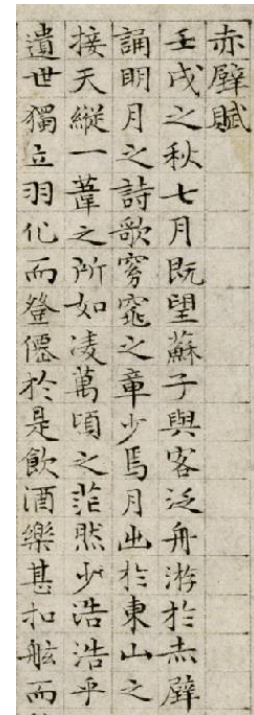 赤壁賦
壬戌之秋七月既望蘇子與客泛舟游於赤壁
誦明月之詩歌窈窕之章少焉月出於東山之
接天縱一葦之所如凌萬頃之茫然少浩浩乎
遺世獨立羽化而登僊於是飲酒樂甚扣舷而